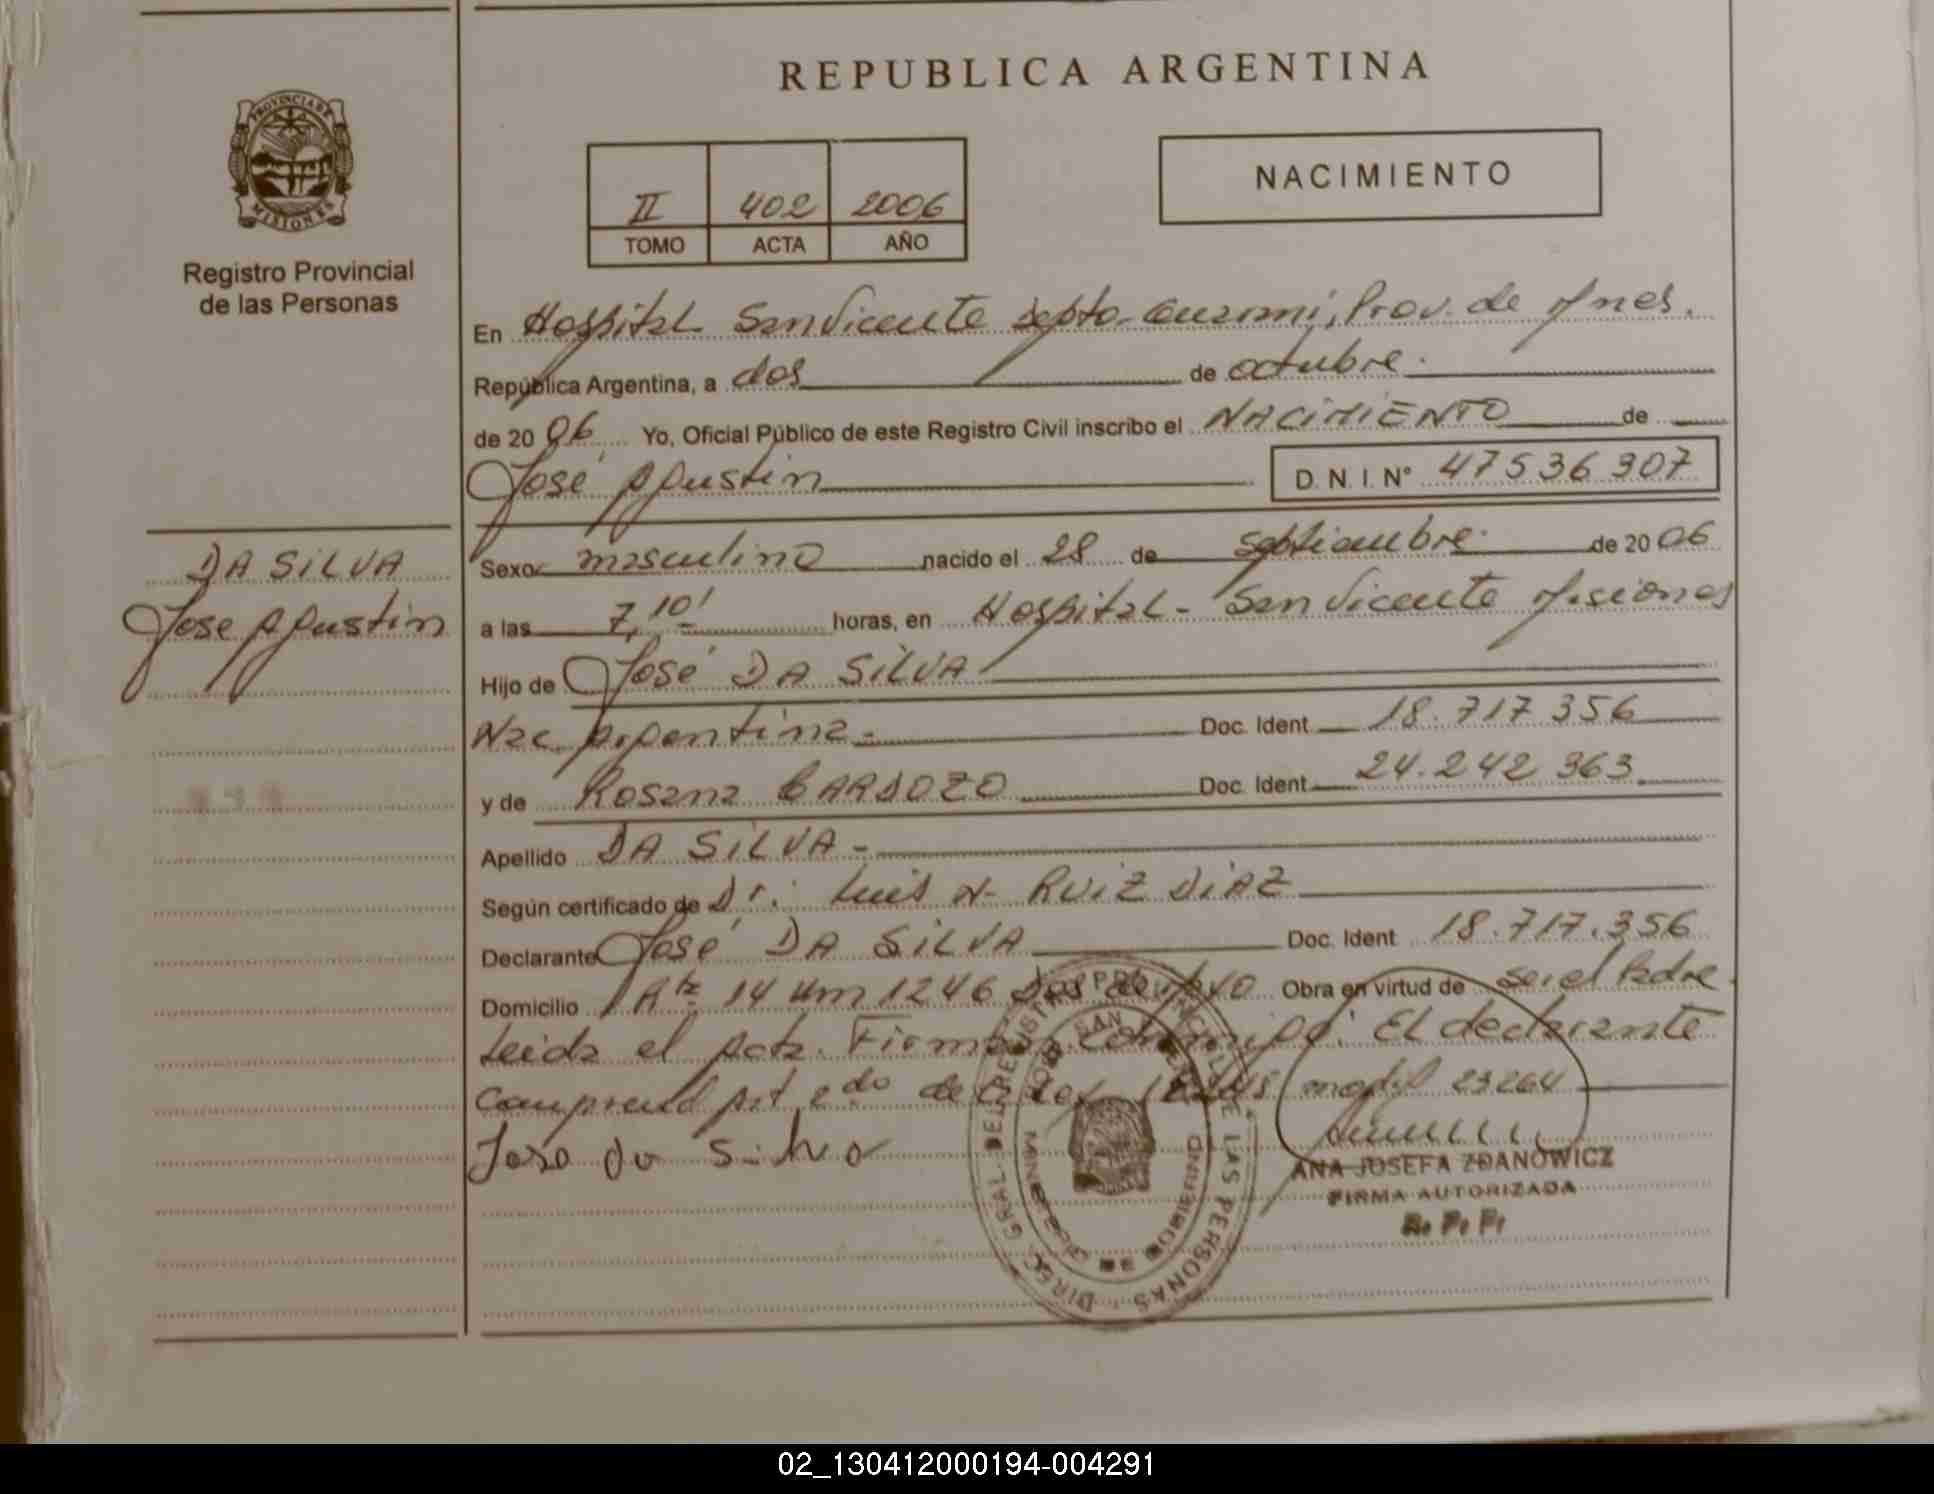 REPUBLICA ARGENTINA
PROVINCIA DE
MISIONES
Registro Provincial
de las Personas
II 402 2006
TOMO ACTA AÑO
NACIMIENTO
En Hospital San Vicente Dpto. Guarani, Prov. de Mnes.
República Argentina, a dos de octubre.
de 20 06 Yo, Oficial Público de este Registro Civil inscribo el NACIMIENTO de
José Agustin D. N. I. N° 47536307
DA SILVA
Jose Agustin
Sexo masculino nacido el 28 de septiembre de 20 06
a las 7,10' horas, en Hospital - San Vicente Misiones
Hijo de José DA SILVA
Nac Argentina - Doc. Ident 18.717.356
y de Rosana CARDOZO Doc. Ident 24.242.363
Apellido DA SILVA -
Según certificado de Dr. Luis N. RUIZ DIAZ
Declarante José DA SILVA Doc. Ident 18.717.356
Domicilio Rta 14 Km 1246 Obra en virtud de ser el Padre.
Leida el Acta. Firma conmigo: El declarante
Comprend Art 2do de la Ley modif 23264
Jose da Silva
ANA JOSEFA ZDANOWICZ
FIRMA AUTORIZADA
R. P. P.
DIREC. GRAL. DEL REGISTRO PROVINCIAL DE LAS PERSONAS
02_130412000194-004291